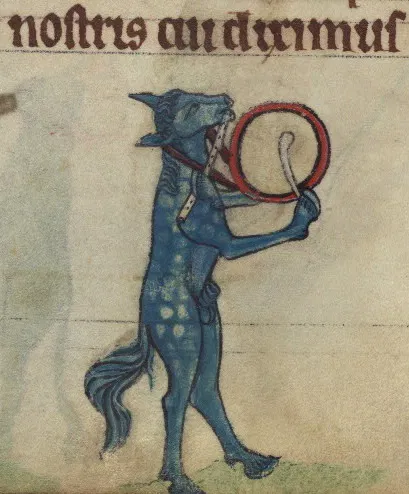 nostris audiximus